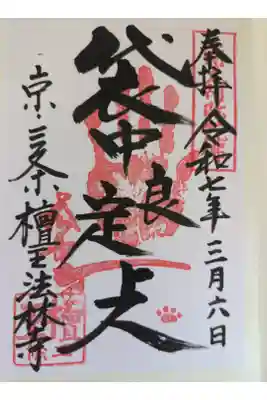 奉拝 令和七年三月六日
袋中良定上人
京三条檀王法林寺